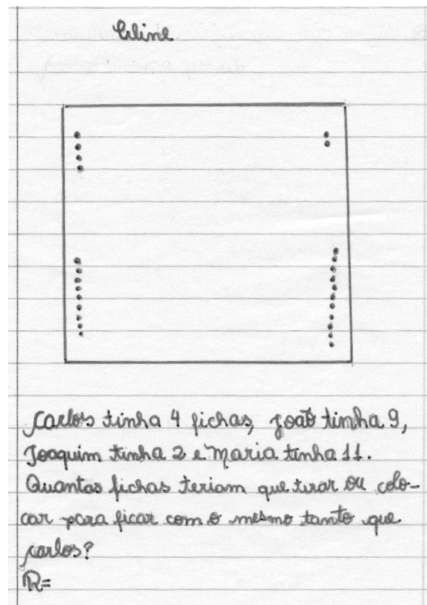 Eline
Carlos tinha 4 fichas, João tinha 9,
Joaquim tinha 2 e Maria tinha 11.
Quantas fichas teriam que tirar ou colo-
car para ficar com o mesmo tanto que
carlos?
R=